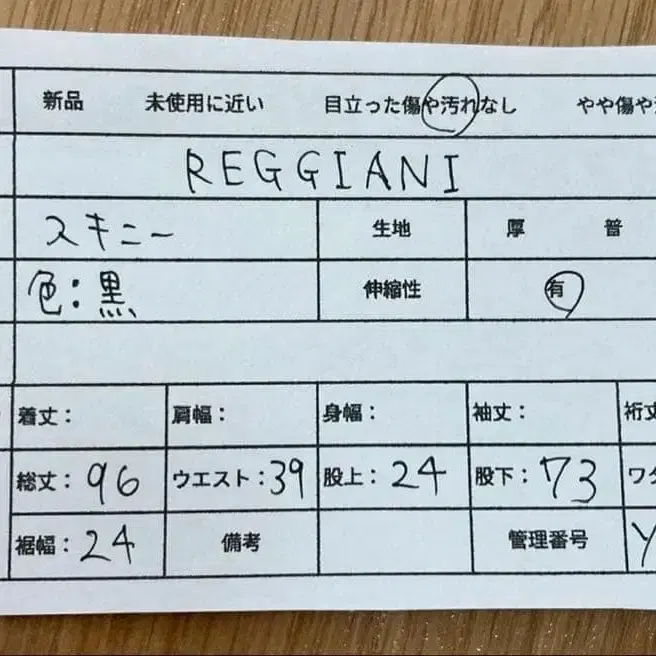 新品 未使用に近い 目立った傷や汚れなし やや傷や
REGGIANI
スキニー 生地 厚 普
色:黒 伸縮性 有
着丈: 肩幅: 身幅: 袖丈: 裄丈
総丈:96 ウエスト:39 股上:24 股下:73 ワタ
裾幅:24 備考 管理番号 Y